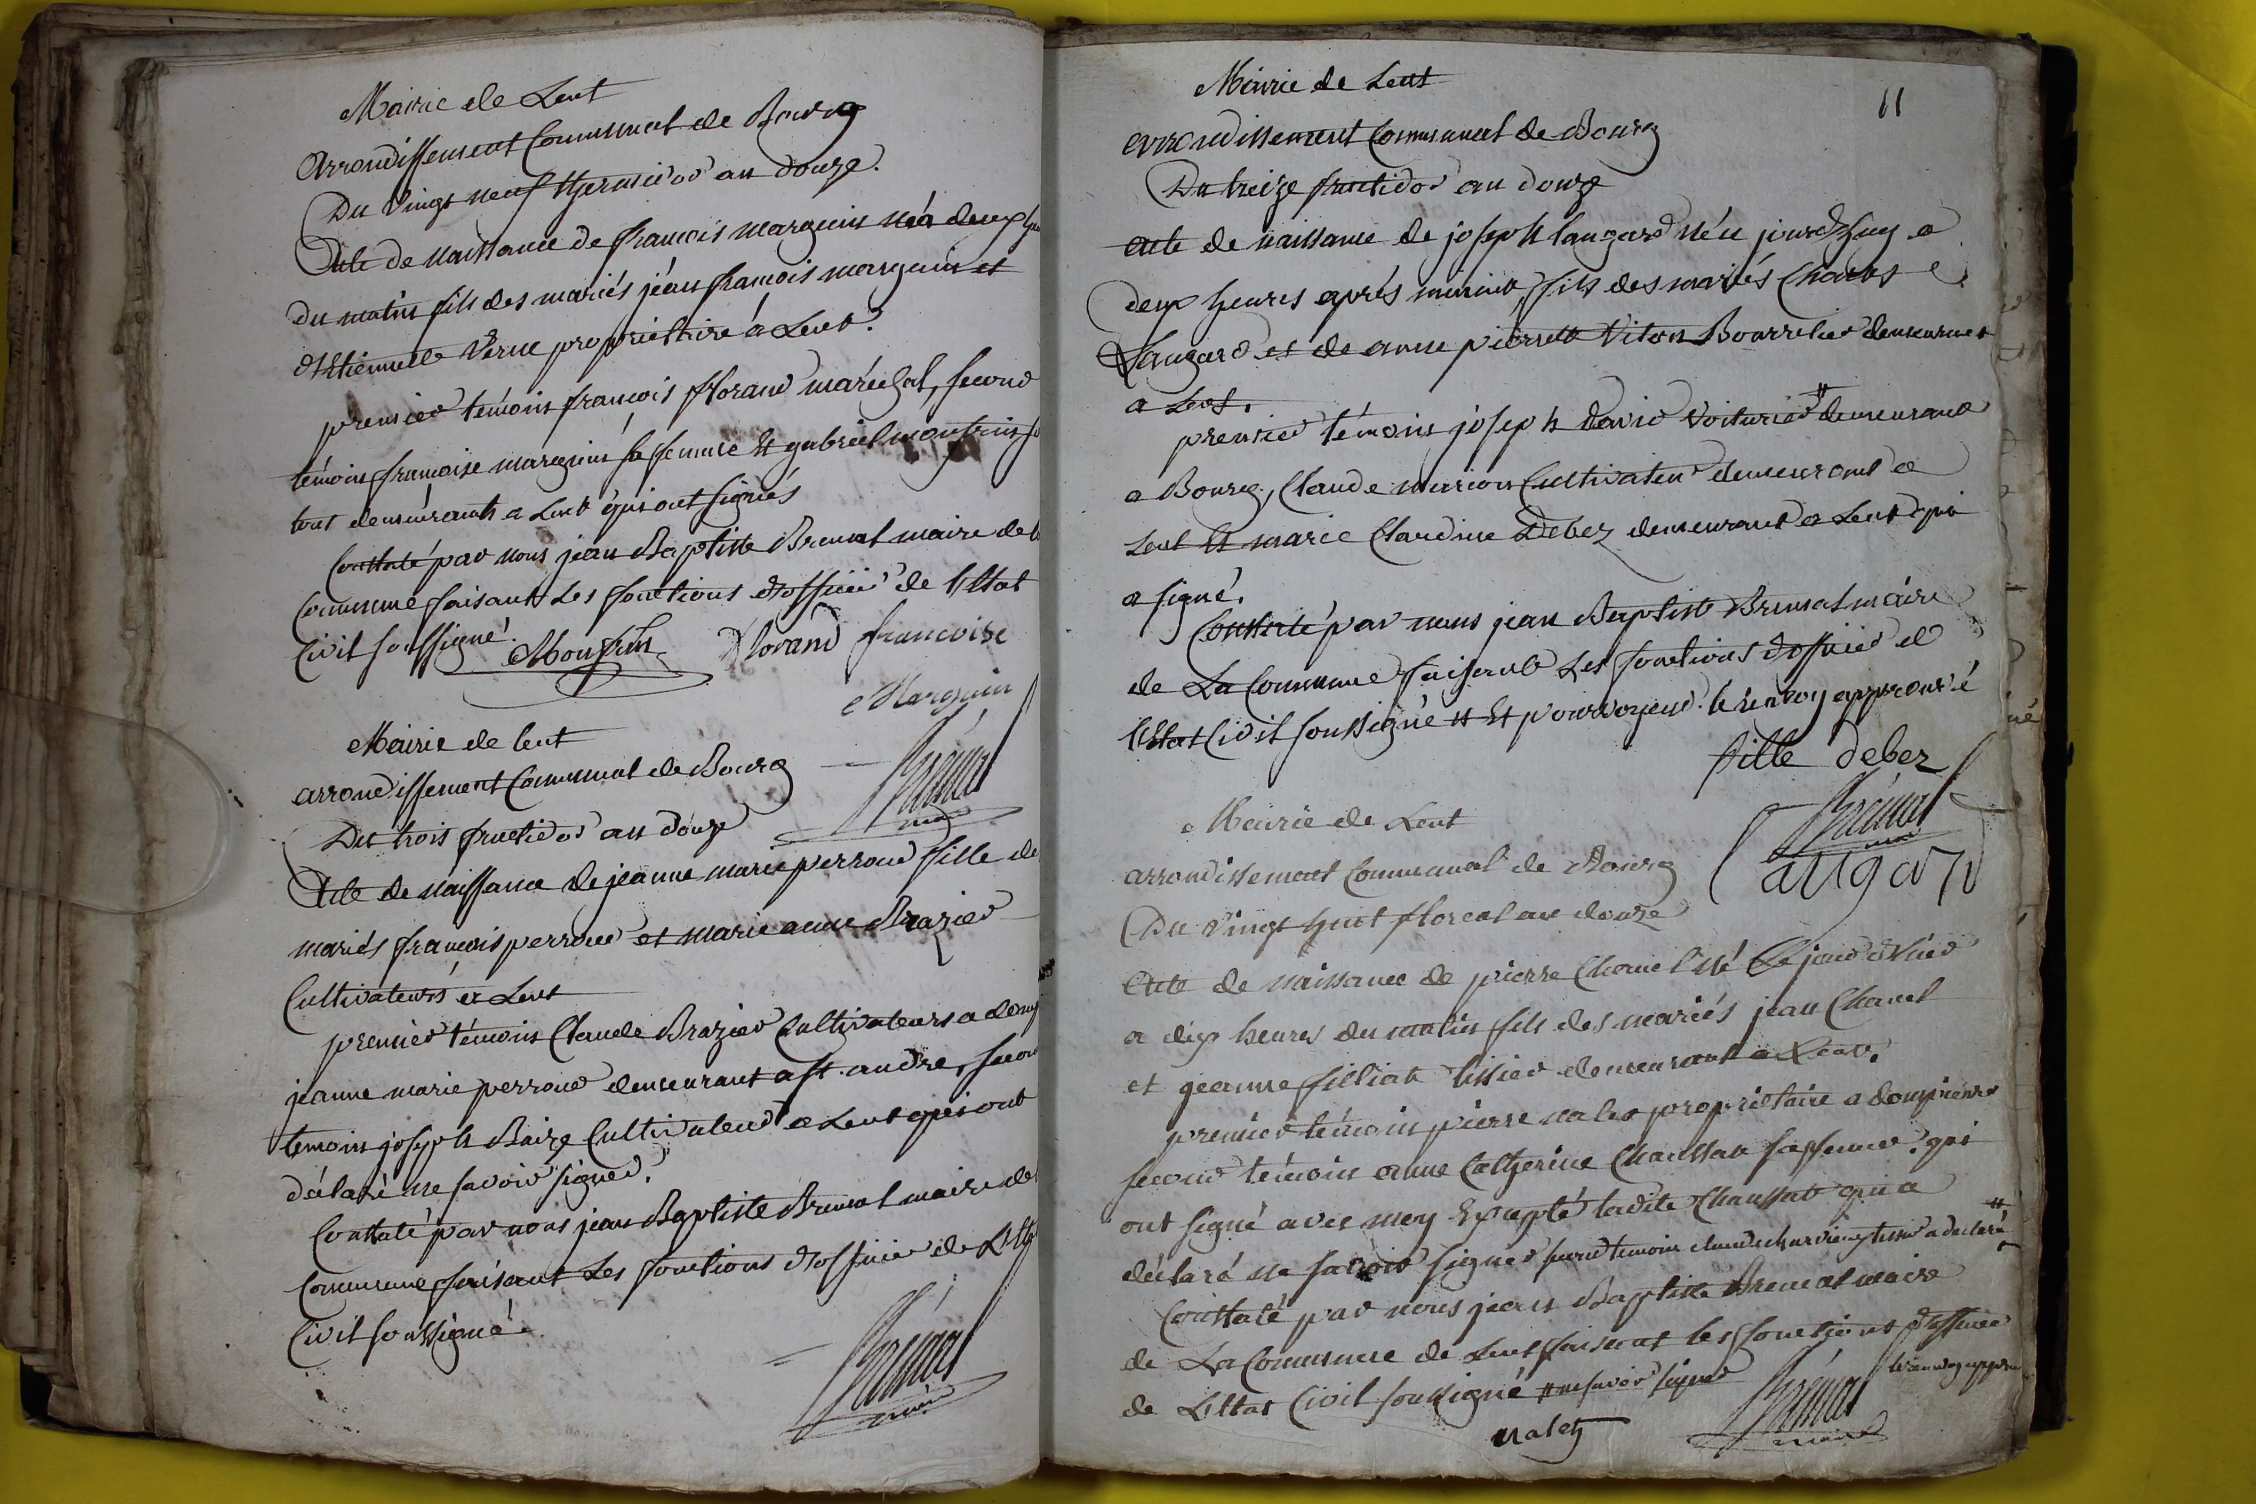 Mairie de Lent
Arrondissement Communal de Bourg
Du vingt neuf thermidor an douze.
Acte de naissance de françois marguin né a deux
du matin fils des mariés jéan françois marguin et
d'Etiennette Verne propriétaire á Lent.
premier témoin françois florand maréchal, second
témoin françoise marguin sa femme Et gabriel monfrin
tous demeurants a Lent qui ont signés
Constaté par nous jean Baptiste Brevat maire de
Commune faisant Les fonctions d'officier de l'Etat
Civil soussigné.
florand françoise
Marguin
Mairie de lent
arrondissement Communal de Bourg
Du trois fructidor an douze
Acte de naissance de jeanne marie perroud fille de
mariés françois perroud et marie anne Brazier
Cultivateurs a Lent
premier témoin Claude Brazier Cultivateurs a
jeanne marie perroud demeurant a st. andre, secon
temoin joseph Baize Cultivateur a Lent qui ont
déclaré ne savoir signer.
Constaté par nous jean Baptiste Brevat maire de
Commune faisant Les fonctions d'officier de L'Etat
Civil soussigné
11
Mairie de Lent
arrondissement Communal de Bourg
Du treize fructidor an douze
acte de naissance de joseph langard né ce jourd'huy a
deux heures aprés minuit, fils des mariés Charles
Langard et de anne pierrette Viton Bourrelier demeurant
a Lent.
premier témoin joseph david voiturier # demeurant
a Bourg, Claude murion Cultivateur demeurant a
Lent Et marie Claudine Debez demeurant a Lent qui
a signé.
Constaté par nous jean Baptiste Brevat maire
de La Commune faisant Les fonctions d'officier de
l'Etat Civil soussigné # Et pourvoyeur. le renvoy approuvé
fille debez
Langard
Mairie de Lent
arrondissement Communal de Bourg
Du vingt huit floreal an douze
Acte de naissance de pierre Chanel né Le jour d'hier
a dix heures du matin fils des mariés jean Chanel
et jeanne filliat tissier demeurant a Lent.
premier témoin pierre nalet propriétaire a dompierre
second temoin anne Catherine Chaussat sa femme. qui
ont signé avec moy Excepté ladite Chaussat qui a
déclaré ne savoir signer second temoin claude tissier a declaré #
Constaté par nous jean Baptiste Brevat maire
de La Commune de Lent faisant les fonctions d'officier
de L'Etat Civil soussigné # ne savoir signer
nalet